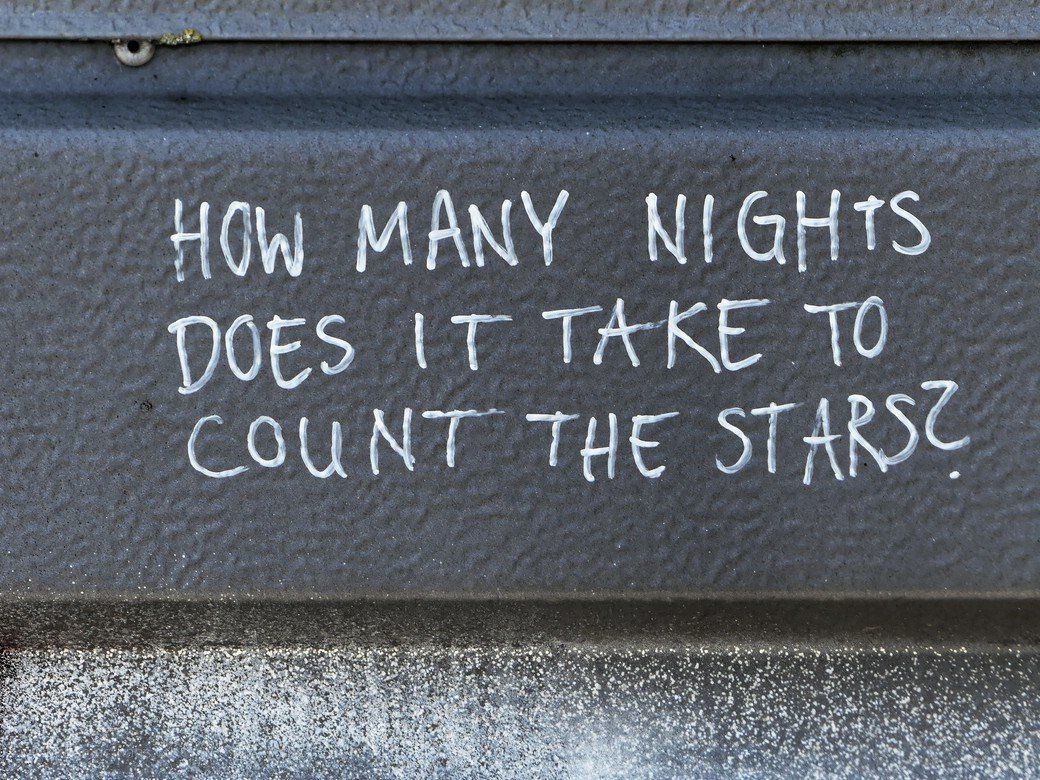 HOW MANY NIGHtS
DOES IT TAKE TO
COUNT THE STARS?